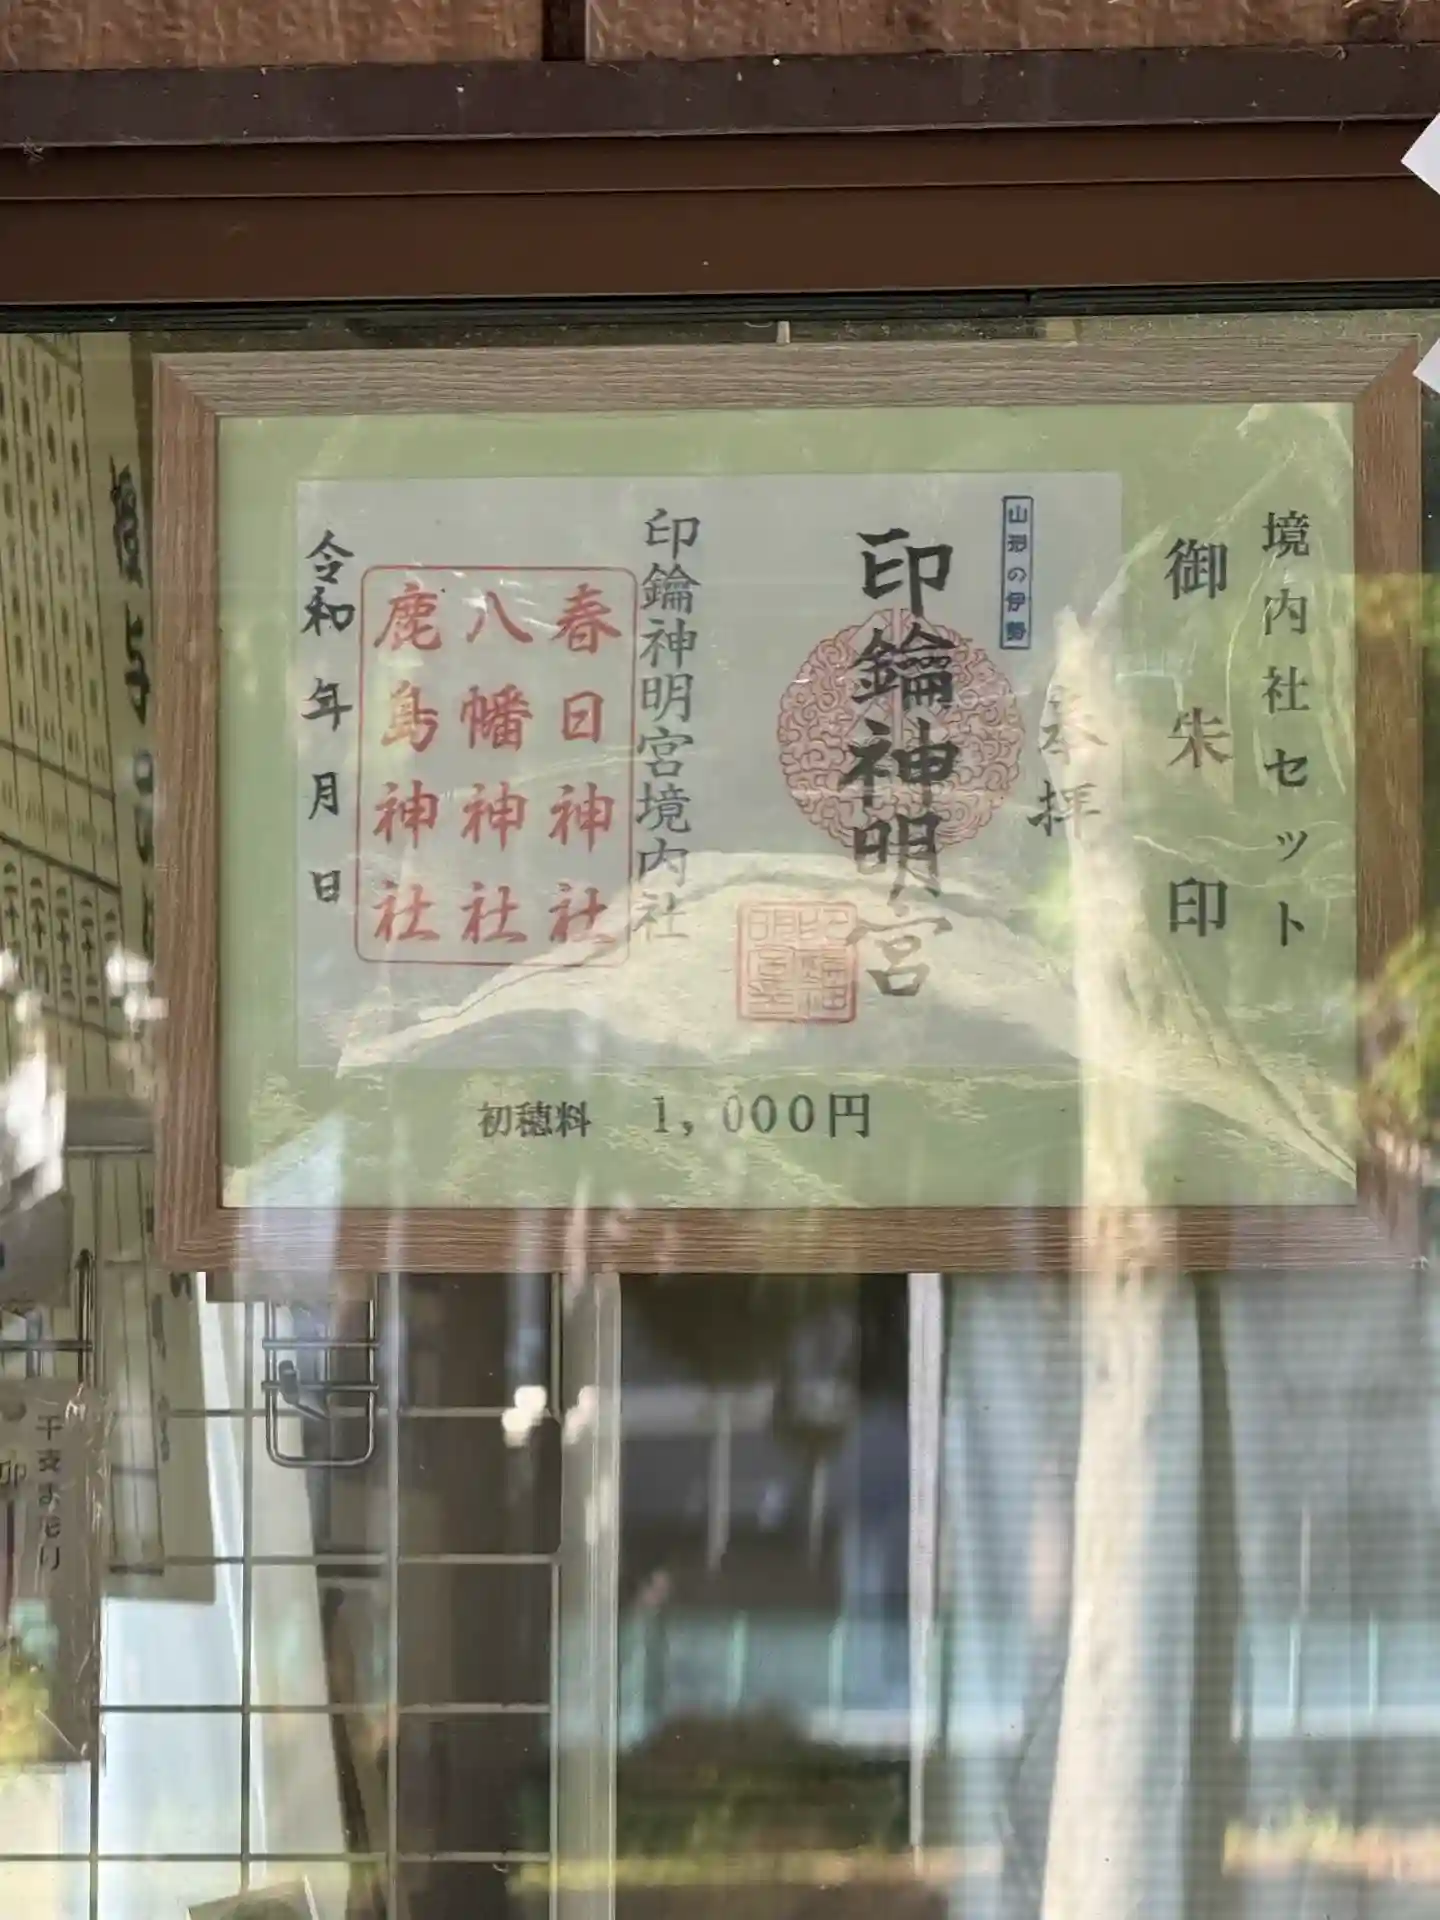 境内社セット
御朱印
奉拝
山形の伊勢
印鑰神明宮
印鑰神明宮境内社
春日神社
八幡神社
鹿島神社
令和 年 月 日
初穂料 1,000円
干支まもり
卯